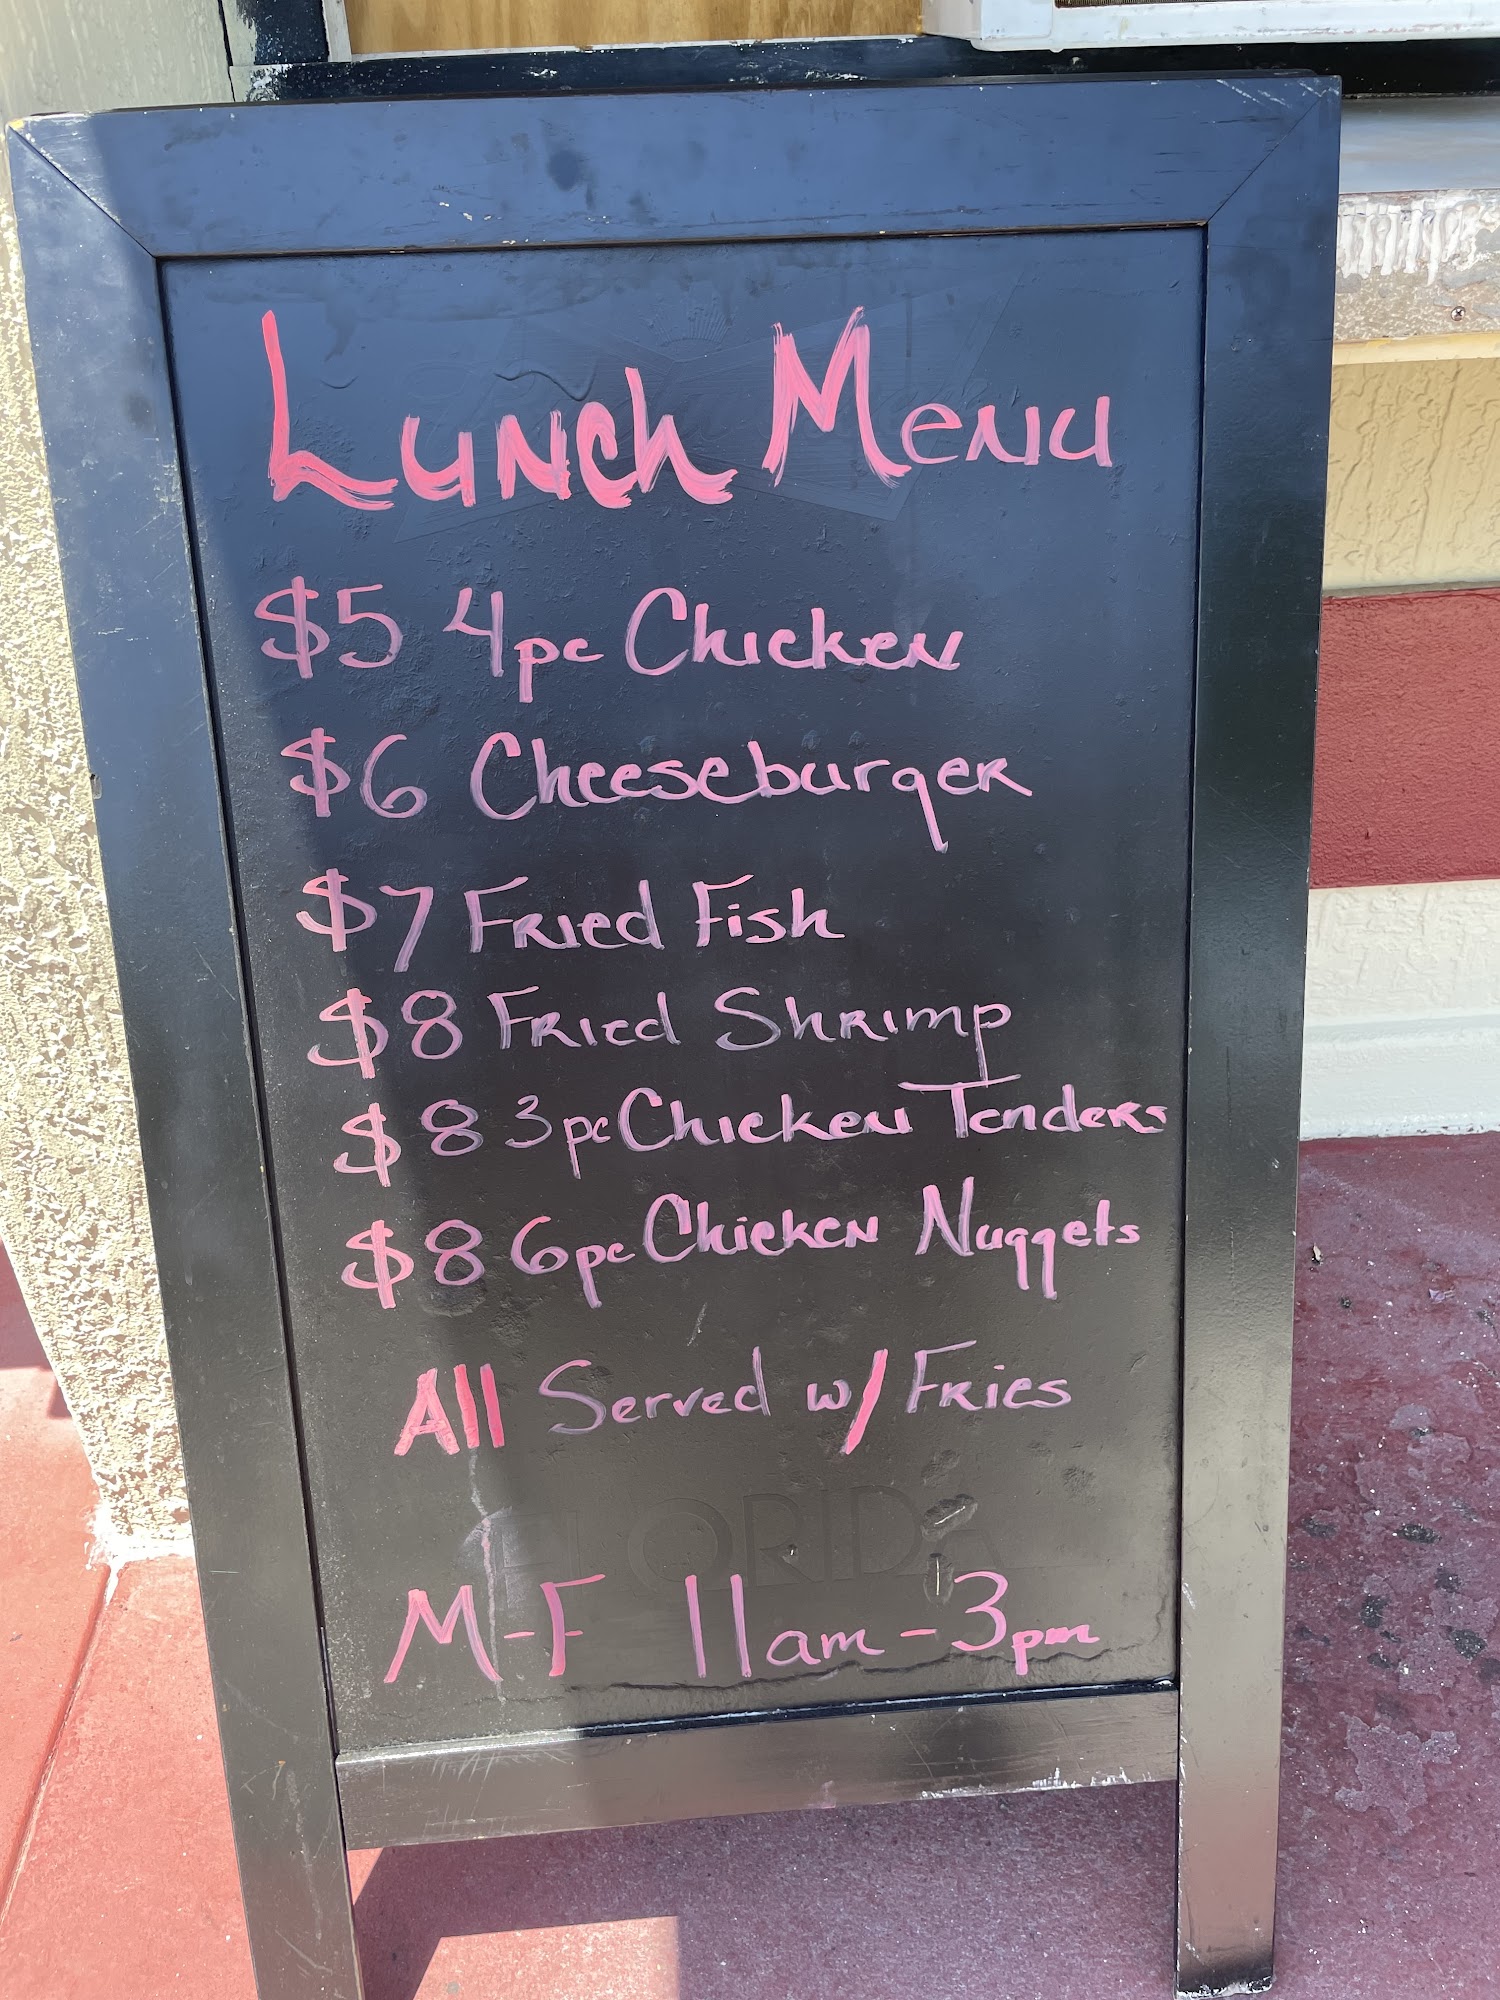 Lunch Menu
$5 4pc Chicken
$6 Cheeseburger
$7 Fried Fish
$8 Fried Shrimp
$8 3pc Chicken Tenders
$8 6pc Chicken Nuggets
All Served w/ Fries
FLORIDA
M-F 11am-3pm